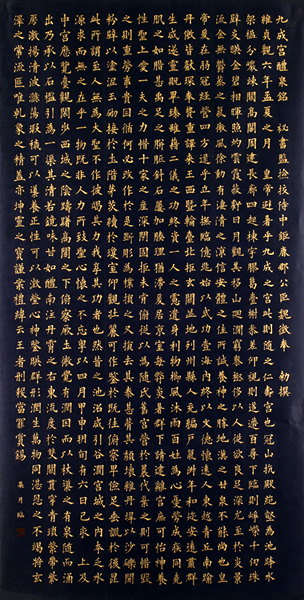 九成宮醴泉銘 秘書監檢校侍中鉅鹿郡公臣魏徵奉 勅撰
維貞觀六年孟夏之月皇帝避暑乎九成之宮此則隋之仁壽宮也冠山抗殿絕壑為池跨水
架楹分巖竦闕高閣周建長廊四起棟宇膠葛臺榭參差仰視則迢遰百尋下臨則崢嶸千仞珠
璧交映金碧相暉照灼雲霞蔽虧日月觀其移山迴澗窮泰極侈以人從欲良足深尤至於炎景
流金無鬱蒸之氣微風徐動有淒清之涼信安體之佳所誠養神之勝地漢之甘泉不能尚也皇
帝爰在弱冠經營四方逮乎立年撫臨億兆始以武功壹海內終以文德懷遠人東越青丘南踰
丹徼皆獻琛奉贄重譯來王西暨輪臺北拒玄闕並地列州縣人充編戶氣淑年和邇安遠肅群
生咸遂靈貺畢臻雖藉二儀之功終資一人之慮遺身利物櫛風沐雨百姓為心憂勞成疾同堯
肌之如腊甚禹足之胼胝針石屢加腠理猶滯爰居京室每弊炎暑群下請建離宮庶可怡神養
性聖上愛一夫之力惜十家之產深閉固拒未肯俯從以為隋氏舊宮營於曩代棄之則可惜毀
之則重勞事貴因循何必改作於是斲彫為樸損之又損去其泰甚葺其頹壞雜丹墀以沙礫間
粉壁以塗泥玉砌接於土階茅茨續於瓊室仰觀壯麗可作鑒於既往俯察卑儉足垂訓於後昆
此所謂至人無為大聖不作彼竭其力我享其功者也然昔之池沼咸引谷澗宮城之內本乏水
源求而無之在乎一物既非人力所致聖心懷之不忘粵以四月甲申朔旬有六日己亥上及
中宮歷覽臺觀閑步西城之陰躊躇高閣之下俯察厥土微覺有潤因而以杖導之有泉隨而涌
出乃承以石檻引為一渠其清若鏡味甘如醴南注丹霄之右東流度於雙闕貫穿青瑣縈帶紫
房激揚清波滌蕩瑕穢可以導養正性可以澂瑩心神鑒映群形潤生萬物同湛恩之不竭將玄
澤之常流匪唯乾象之精蓋亦坤靈之寶謹案禮緯云王者刑殺當罪賞錫 月臨